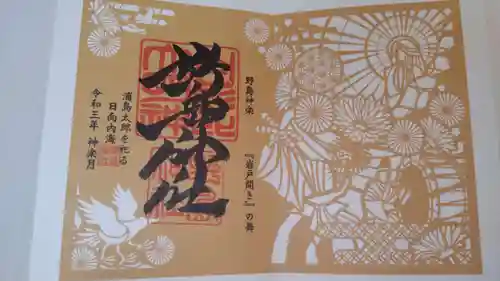 野島神楽 『岩戸開き』の舞
野島神社
浦島太郎を祀る
日向内海
令和三年 神楽月